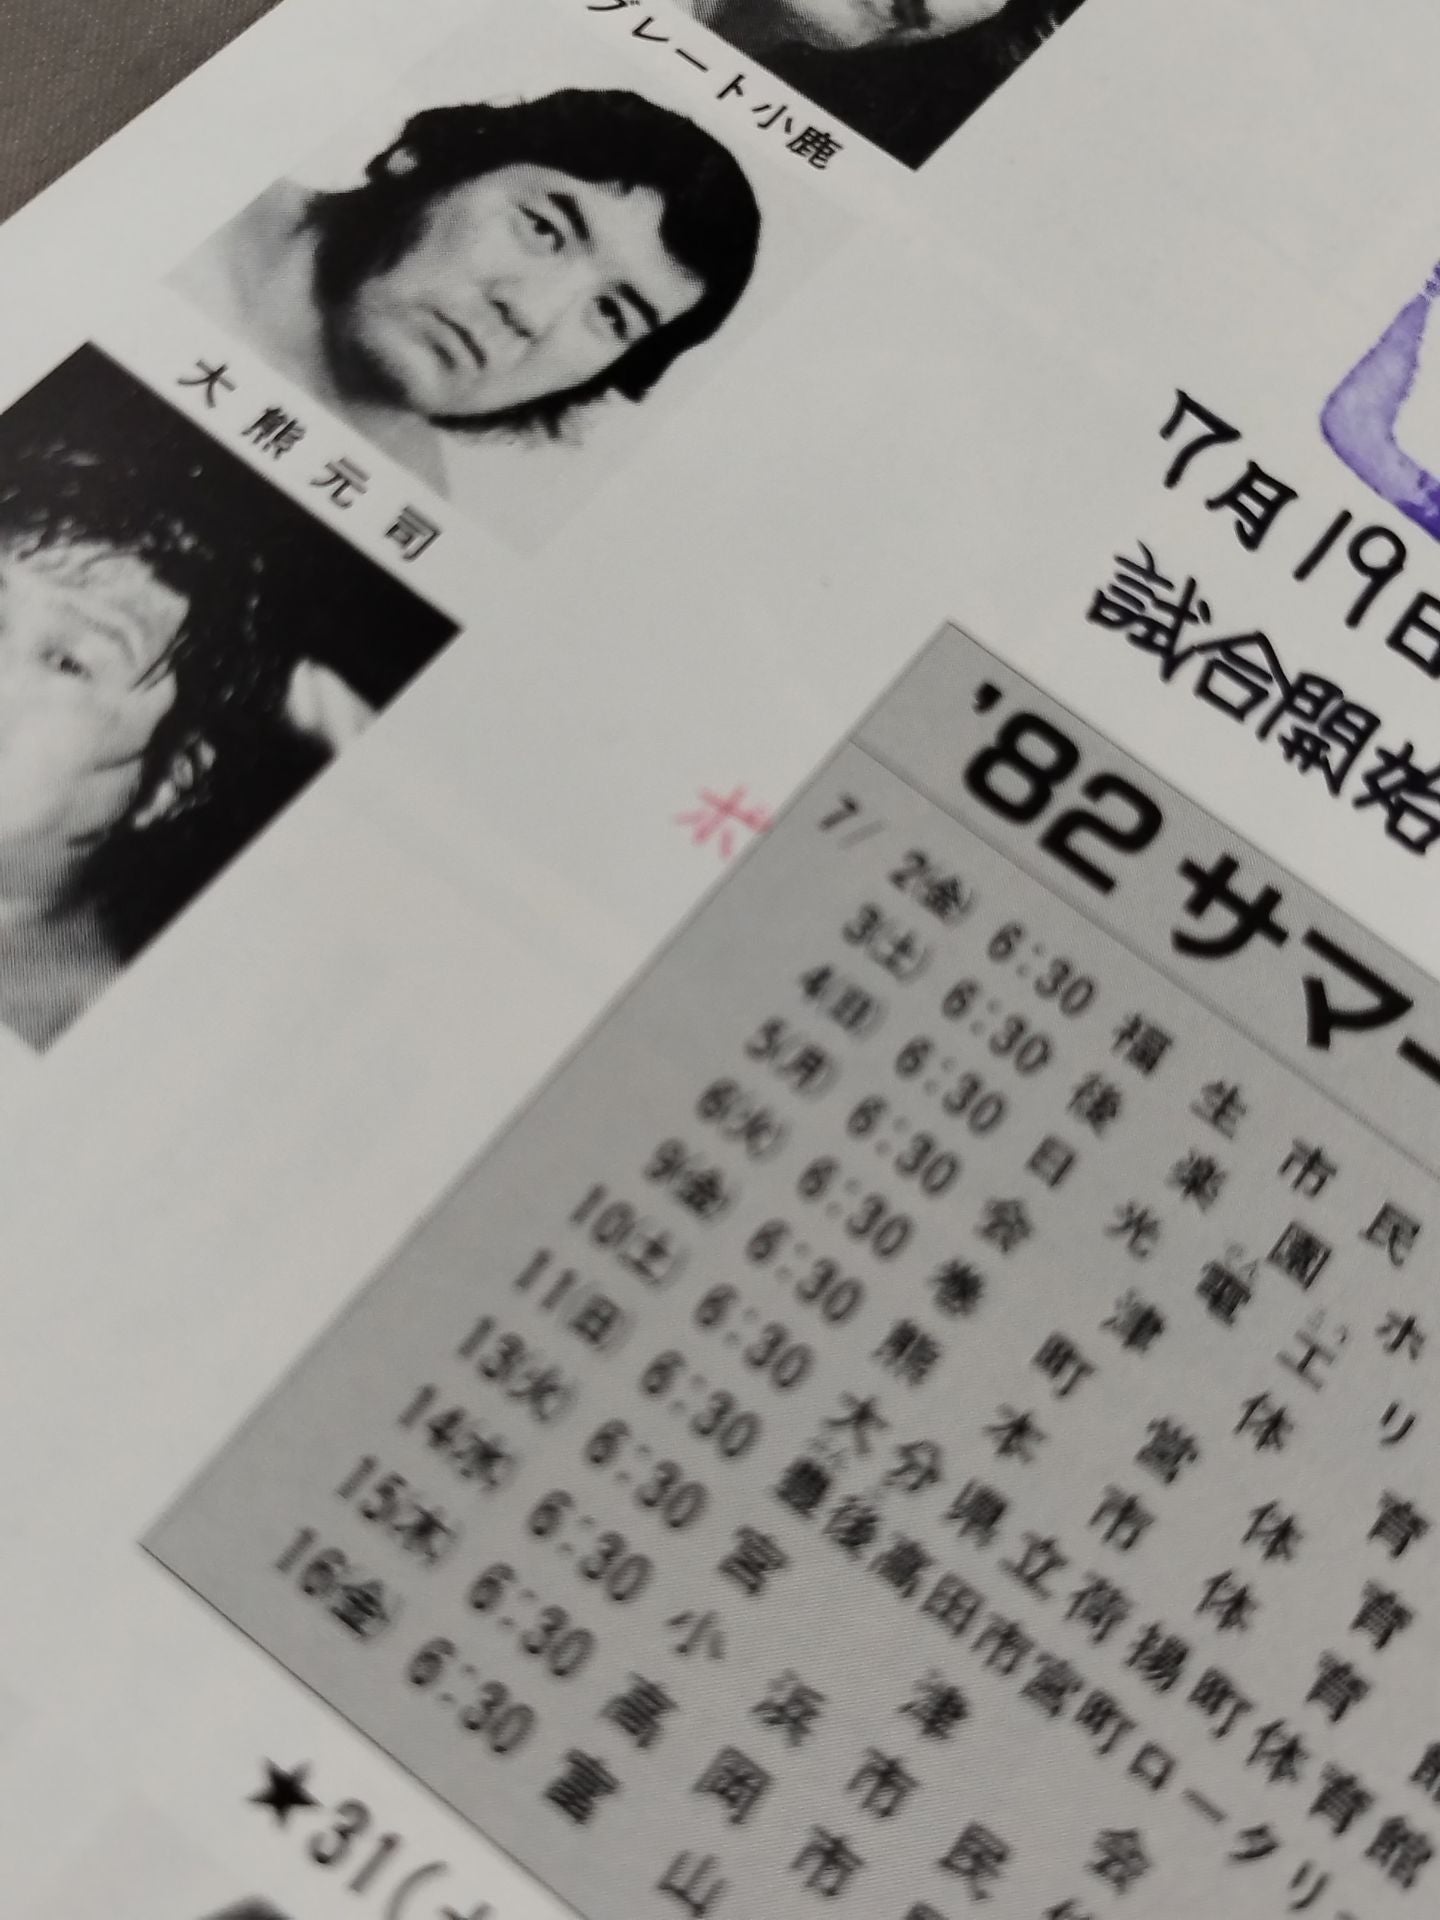 グレート小鹿
大熊元司
7月19日
試合開始
ボ
'82サマー
7/2(金) 6:30 福生市民ホ
3(土) 6:30 後楽園ホリ
4(日) 6:30 日光電工体育
5(月) 6:30 会津体育
6(火) 6:30 巻町営体育館
9(金) 6:30 熊本市体育館
10(土) 6:30 大分県立荷揚町体育館
11(日) 6:30 豊後高田市宮町ロータリ
13(火) 6:30 宮津会
14(水) 6:30 小浜市民体
15(木) 6:30 高岡市民
16(金) 6:30 富山
★31(